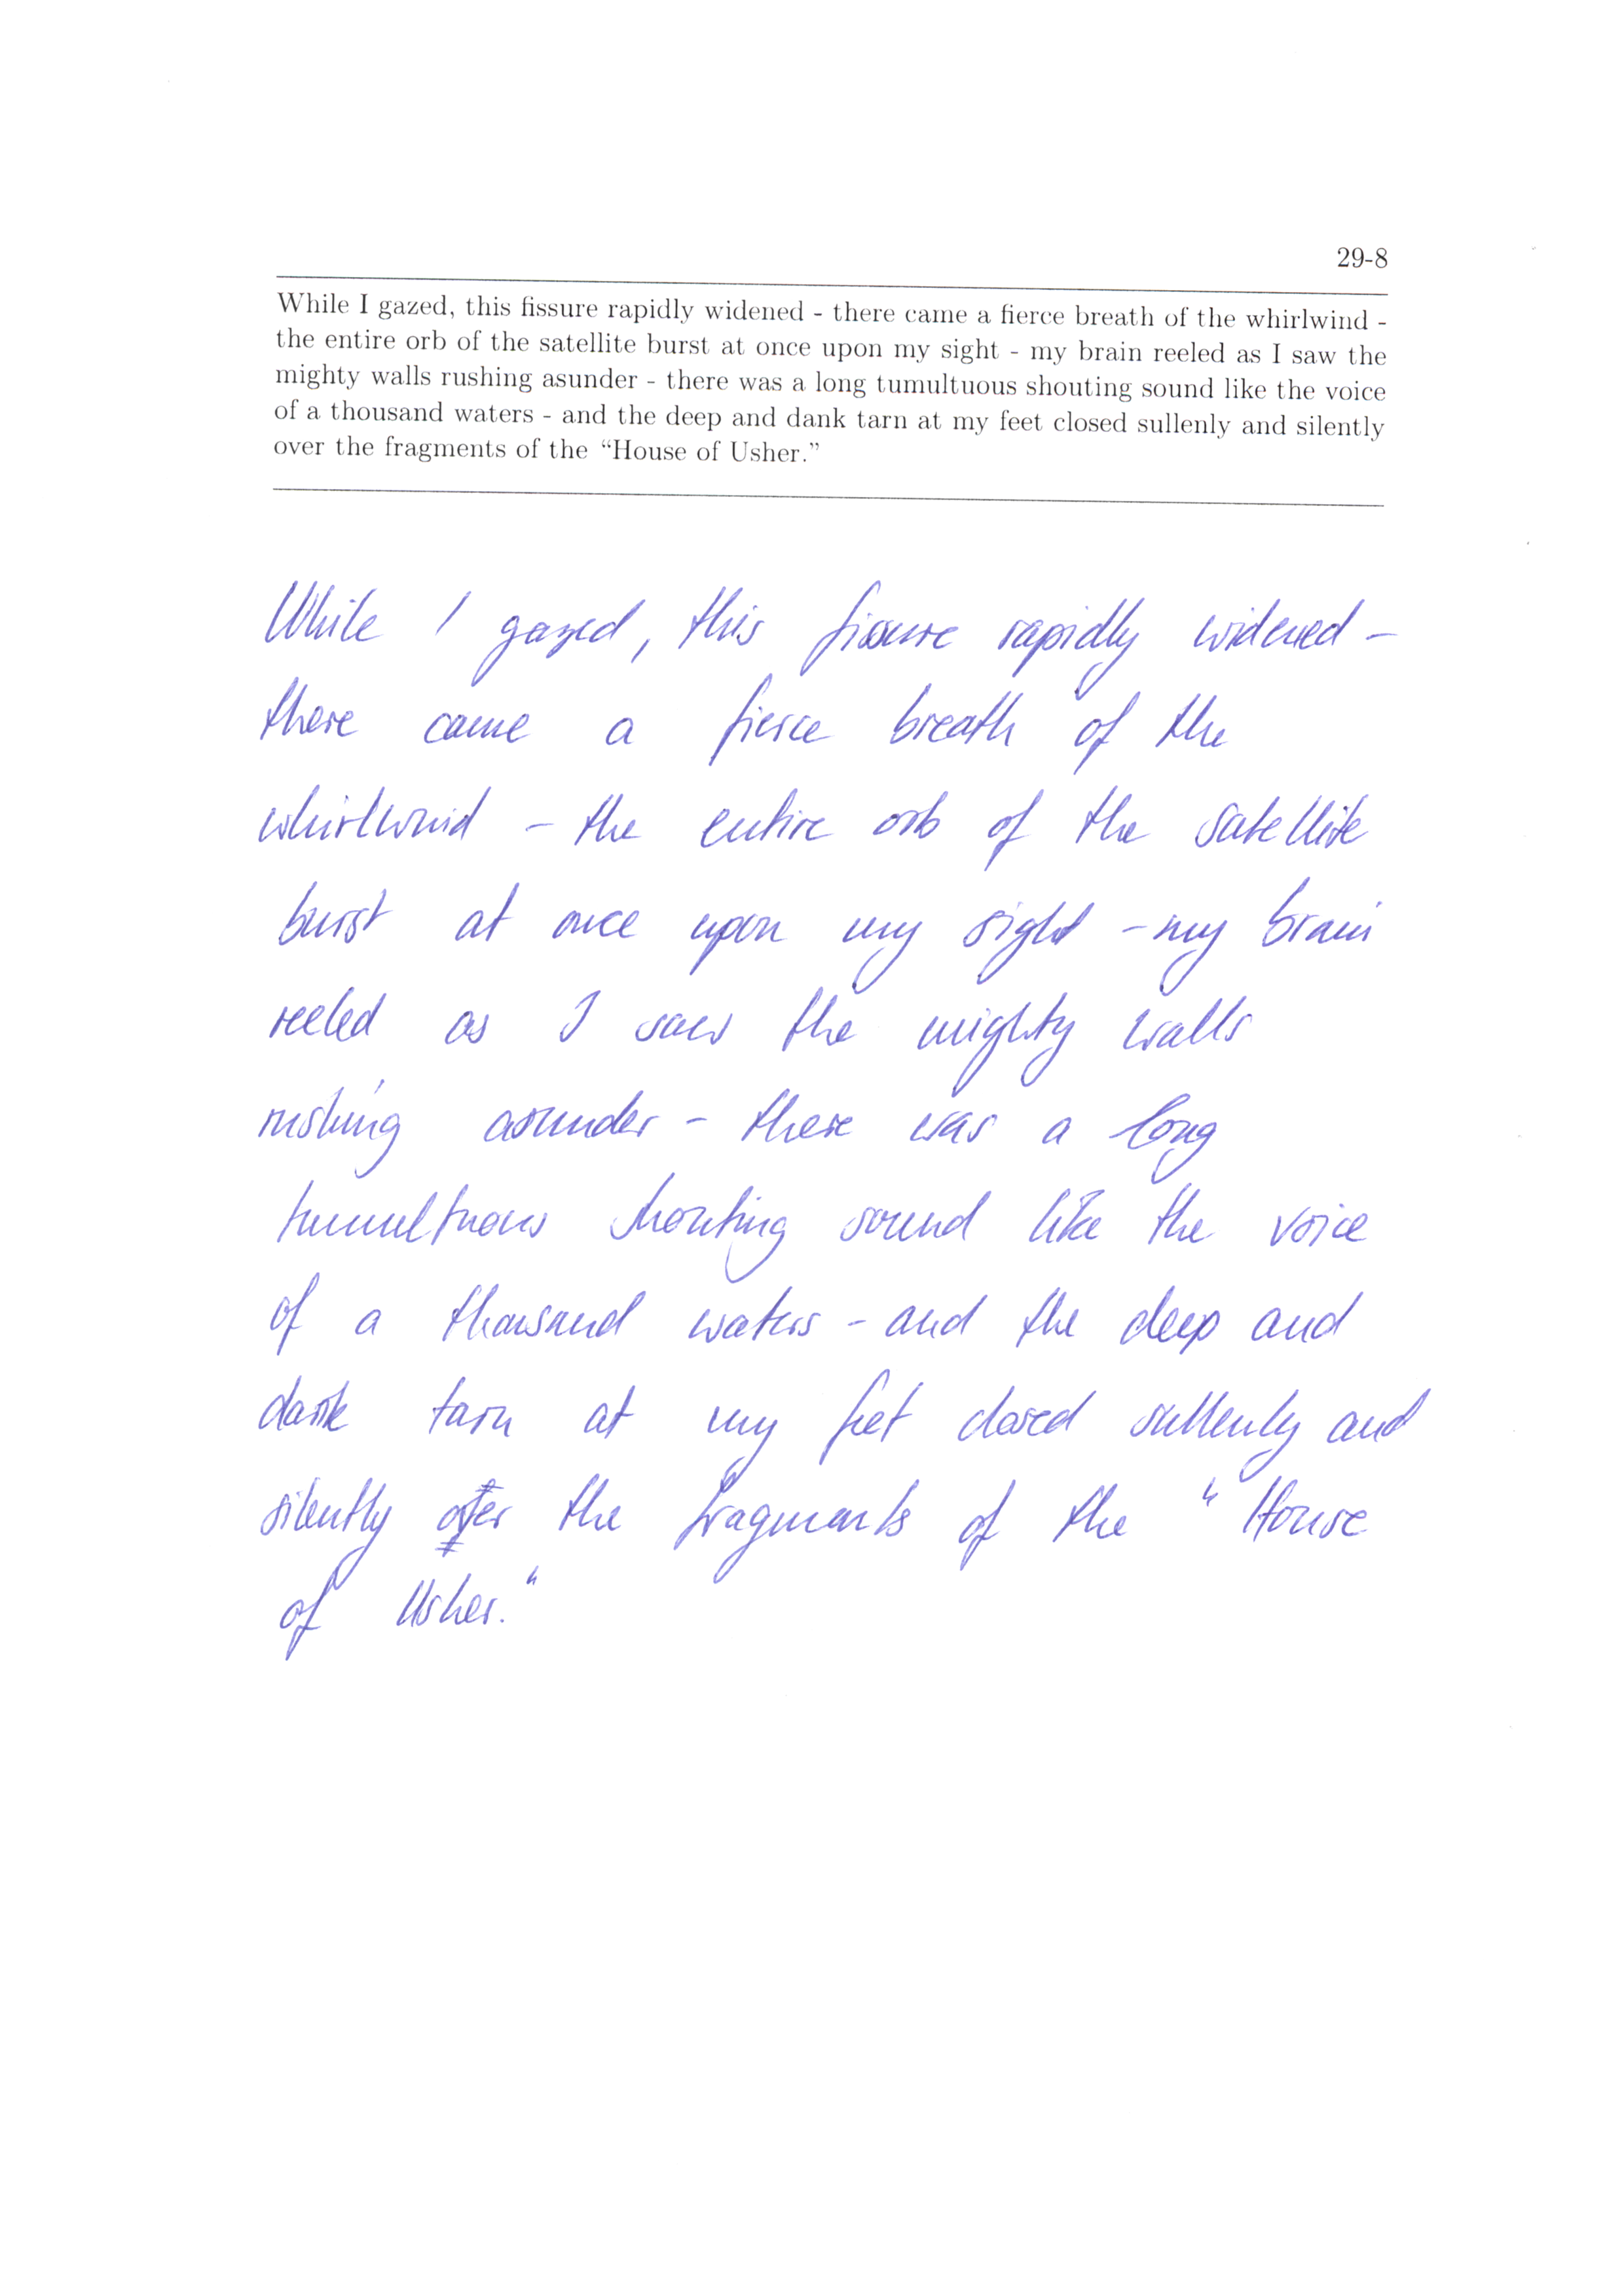 29-8
While I gazed, this fissure rapidly widened - there came a fierce breath of the whirlwind -
the entire orb of the satellite burst at once upon my sight - my brain reeled as I saw the
mighty walls rushing asunder - there was a long tumultuous shouting sound like the voice
of a thousand waters - and the deep and dank tarn at my feet closed sullenly and silently
over the fragments of the “House of Usher.”
While I gazed, this fissure rapidly widened -
there came a fierce breath of the
whirlwind - the entire orb of the satellite
burst at once upon my sight - my brain
reeled as I saw the mighty walls
rushing asunder - there was a long
tumultuous shouting sound like the voice
of a thousand waters - and the deep and
dank tarn at my feet closed sullenly and
silently over the fragments of the "House
of Usher."